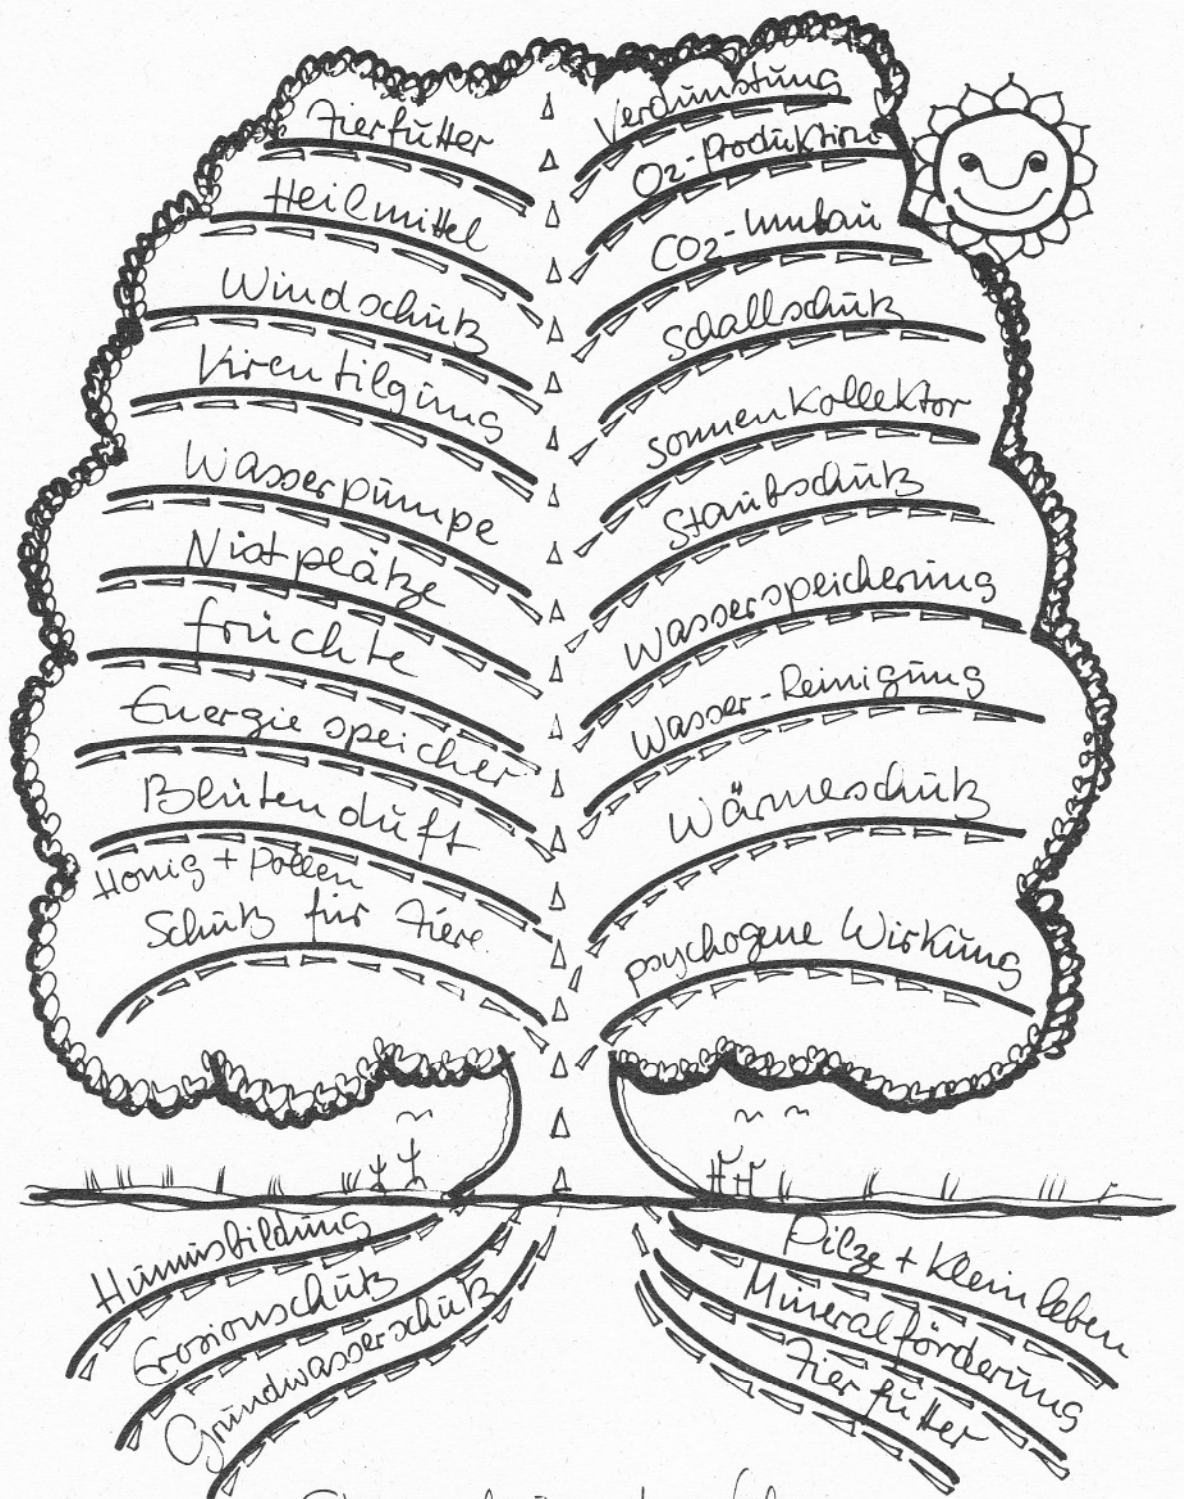 Tierfutter
Heilmittel
Windschutz
Virentilgung
Wasserpumpe
Nistplätze
Früchte
Energiespeicher
Blütenduft
Honig + Pollen
Schutz für Tiere
Verdunstung
O2-Produktion
CO2-Umbau
Schallschutz
Sonnenkollektor
Staubschutz
Wasserspeicherung
Wasser-Reinigung
Wärmeschutz
psychogene Wirkung
Humusbildung
Erosionschutz
Grundwasserschutz
Pilze + Kleinleben
Mineralförderung
Tierfutter